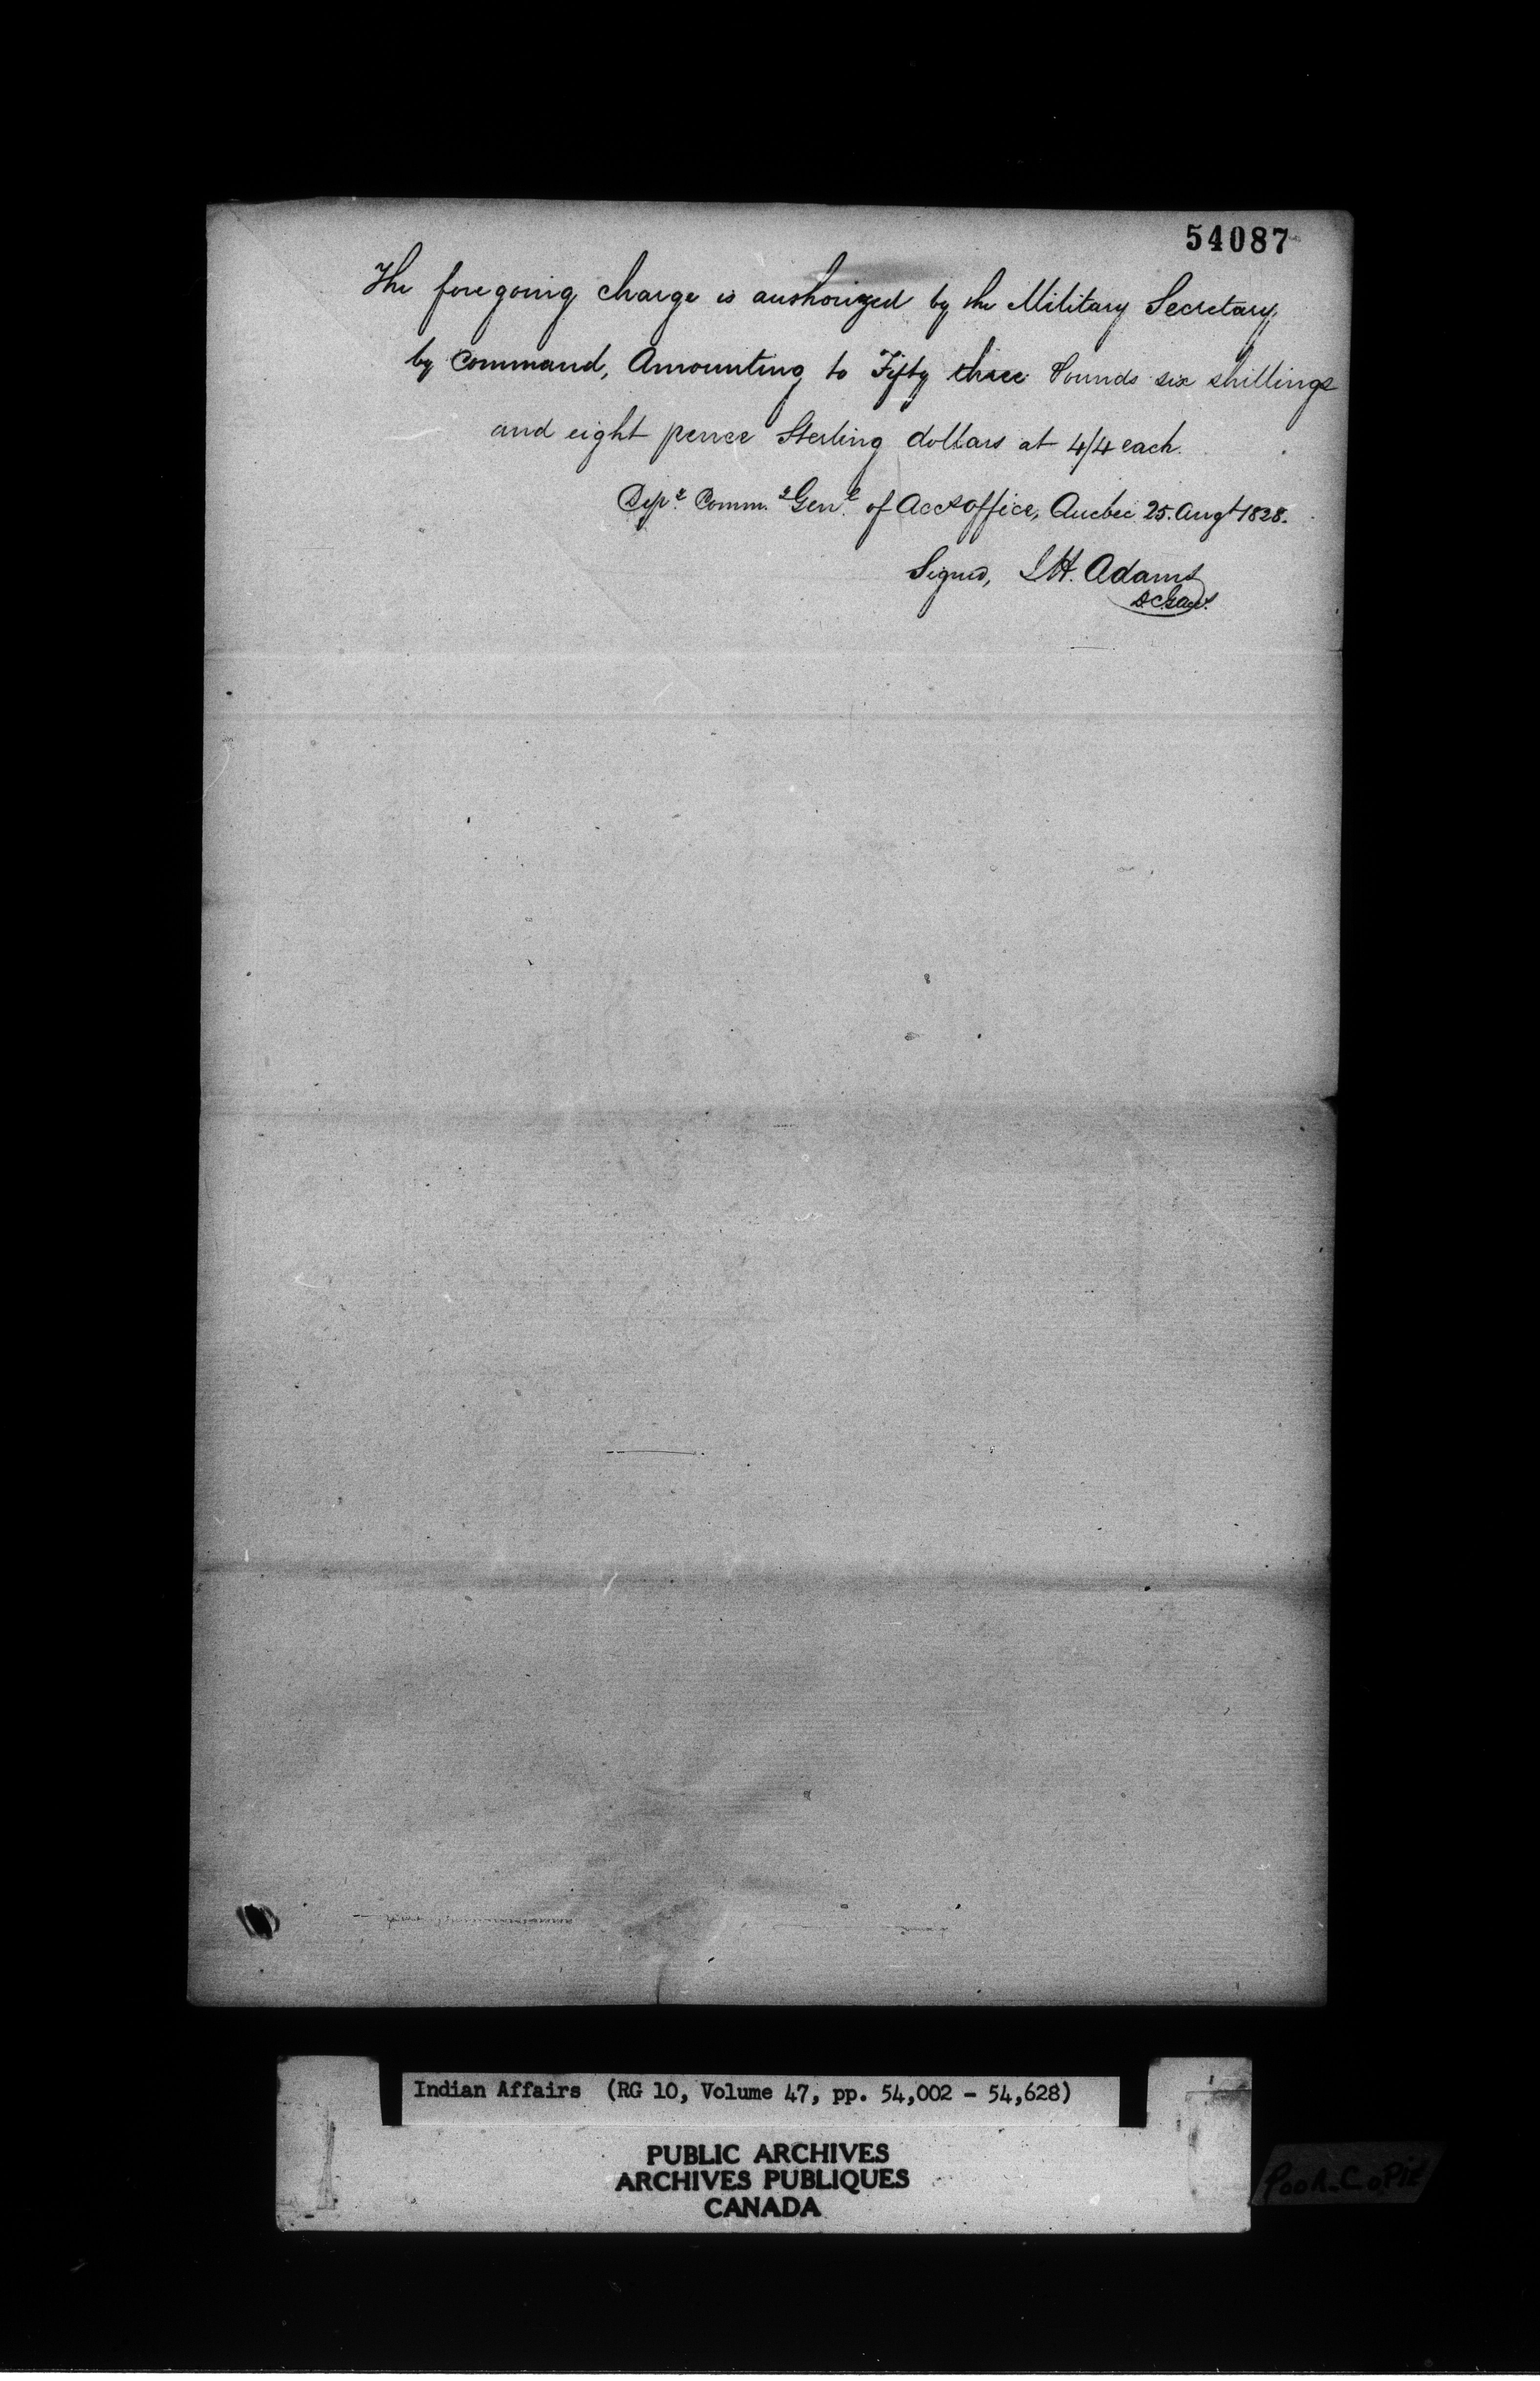 54087
The foregoing charge is authorized by the Military Secretary,
by Command, Amounting to Fifty three Pounds six shillings
and eight pence Sterling dollars at 4/4 each.
Depy. Commy. Genl. of Acct office, Quebec 25. Augt 1828.
Signed, H. Adams
Indian Affairs (RG 10, Volume 47, pp. 54,002 - 54,628)
PUBLIC ARCHIVES
ARCHIVES PUBLIQUES
CANADA
POOR COPIE